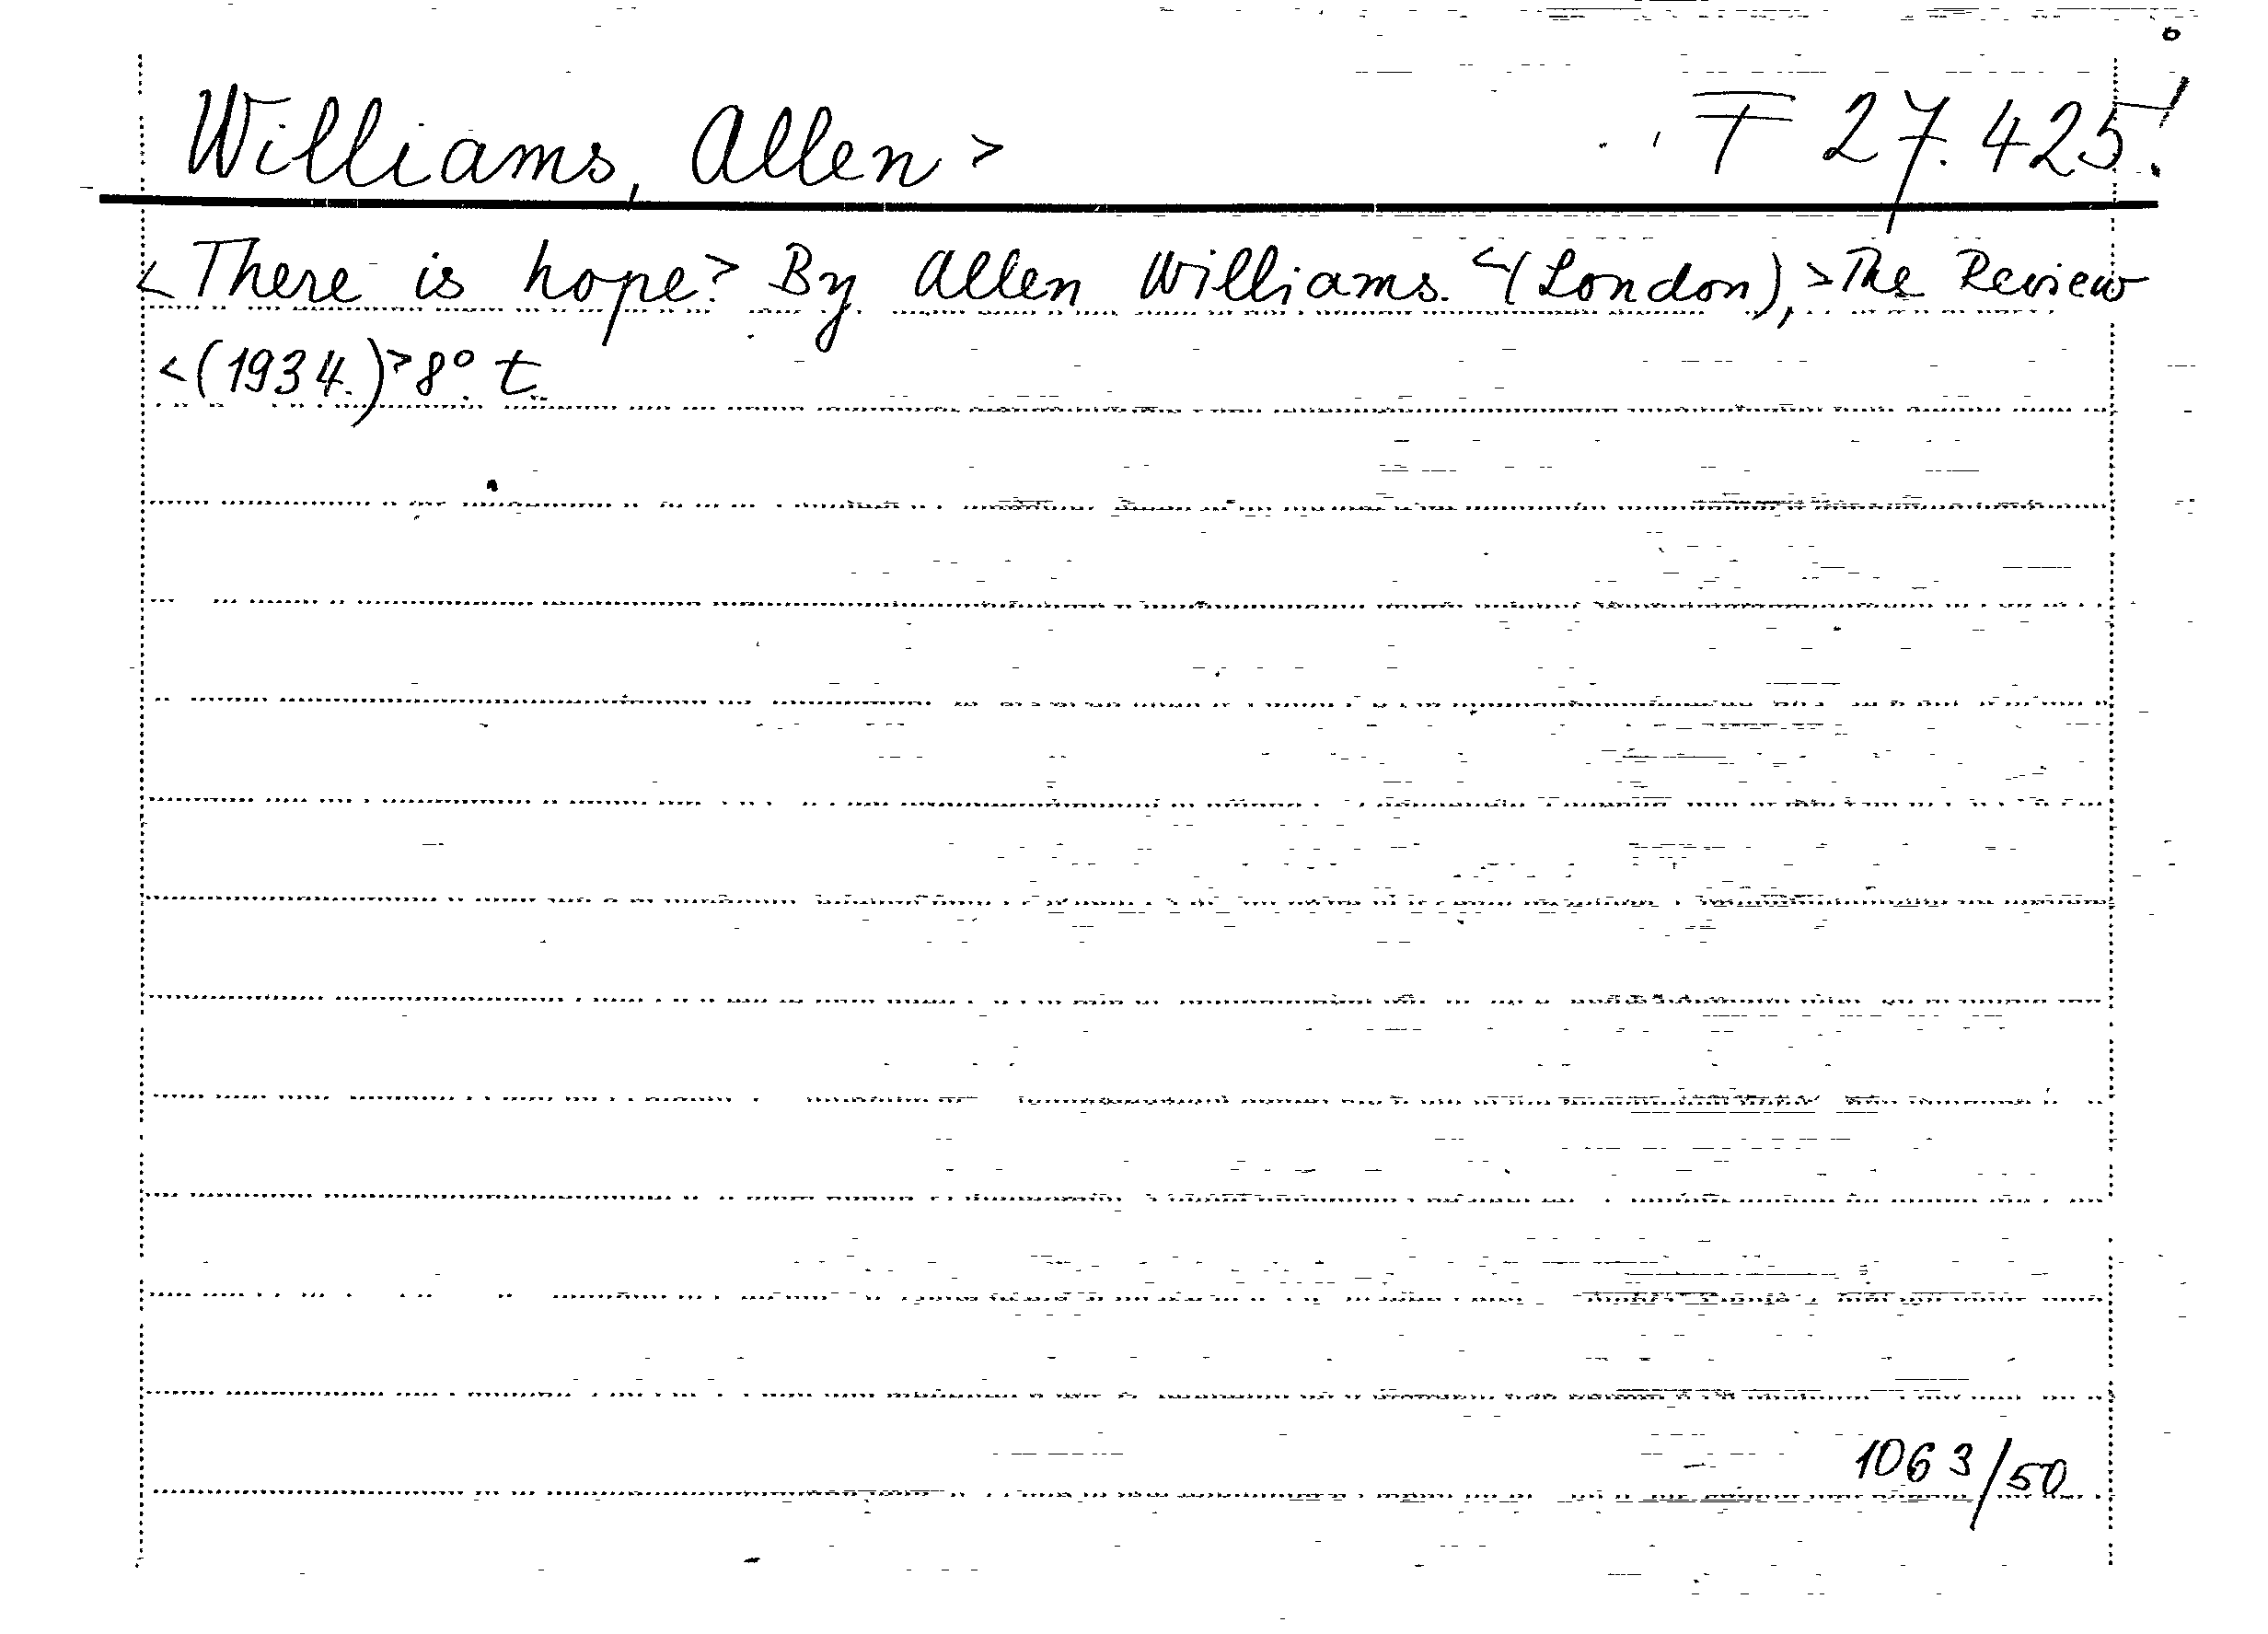 Williams, Allen > F 27.425!
<There is hope?> By Allen Williams. <(London),> The Review
<(1934.)> 8° t.
1063/50